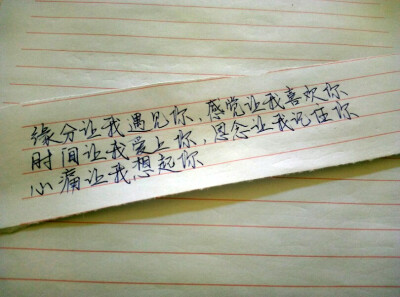 缘分让我遇见你、感觉让我喜欢你
时间让我爱上你、思念让我记住你
心痛让我想起你